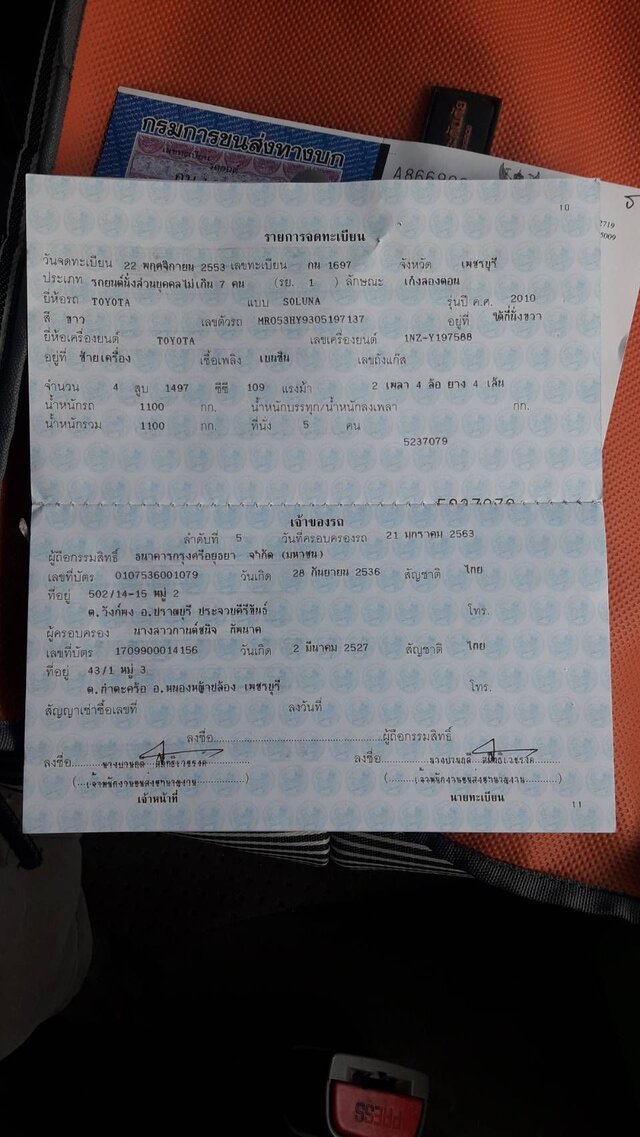 กรมการขนส่งทางบก
10
รายการจดทะเบียน
วันจดทะเบียน 22 พฤศจิกายน 2553 เลขทะเบียน กน 1697 จังหวัด เพชรบุรี
ประเภท รถยนต์นั่งส่วนบุคคลไม่เกิน 7 คน (รย. 1 ) ลักษณะ เก๋งสองตอน
ยี่ห้อรถ TOYOTA แบบ SOLUNA รุ่นปี ค.ศ. 2010
สี ขาว เลขตัวรถ MR053HY9305197137 อยู่ที่ ใต้ที่นั่งขวา
ยี่ห้อเครื่องยนต์ TOYOTA เลขเครื่องยนต์ 1NZ-Y197588
อยู่ที่ ซ้ายเครื่อง เชื้อเพลิง เบนซิน เลขถังแก๊ส
จำนวน 4 สูบ 1497 ซีซี 109 แรงม้า 2 เพลา 4 ล้อ ยาง 4 เส้น
น้ำหนักรถ 1100 กก. น้ำหนักบรรทุก/น้ำหนักลงเพลา กก.
น้ำหนักรวม 1100 กก. ที่นั่ง 5 คน
5237079
เจ้าของรถ
ลำดับที่ 5 วันที่ครอบครองรถ 21 มกราคม 2563
ผู้ถือกรรมสิทธิ์ ธนาคารกรุงศรีอยุธยา จำกัด (มหาชน)
เลขที่บัตร 0107536001079 วันเกิด 28 กันยายน 2536 สัญชาติ ไทย
ที่อยู่ 502/14-15 หมู่ 2
ต.วังก์พง อ.ปราณบุรี ประจวบคีรีขันธ์ โทร.
ผู้ครอบครอง
เลขที่บัตร 1709900014156 วันเกิด 2 มีนาคม 2527 สัญชาติ ไทย
ที่อยู่ 43/1 หมู่ 3
อ.หนองหญ้าปล้อง เพชรบุรี โทร.
สัญญาเช่าซื้อเลขที่ ลงวันที่
ลงชื่อ ผู้ถือกรรมสิทธิ์
ลงชื่อ ลงชื่อ
เจ้าหน้าที่ นายทะเบียน
11
PRESS